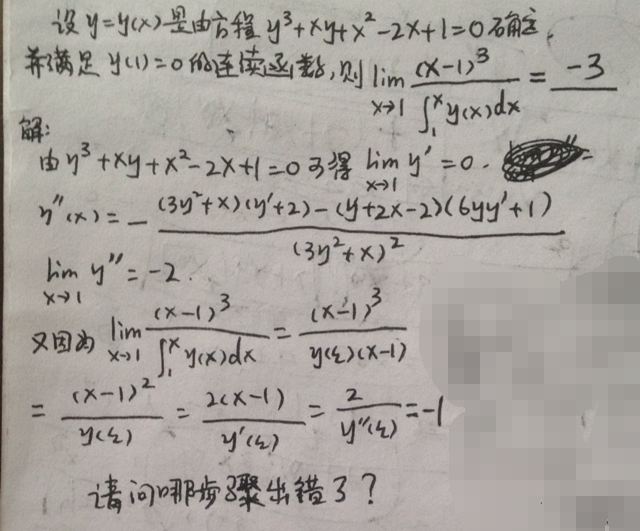 设y=y(x)是由方程 y³+xy+x²-2x+1=0确定,
并满足 y(1)=0的连续函数,则 lim_{x→1} (x-1)³/∫₁ˣy(x)dx = -3
解:
由y³+xy+x²-2x+1=0可得 lim_{x→1} y'=0.
y''(x)=-((3y²+x)(y'+2)-(y+2x-2)(6yy'+1))/(3y²+x)²
lim_{x→1} y''=-2.
又因为 lim_{x→1} (x-1)³/∫₁ˣy(x)dx = (x-1)³/y(ξ)(x-1)
= (x-1)²/y(ξ) = 2(x-1)/y'(ξ) = 2/y''(ξ) =-1
请问哪步骤出错了?